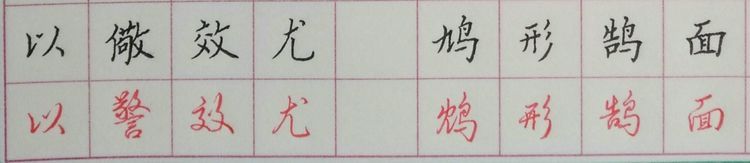 以儆效尤 鸠形鹄面
以警效尤 鸠形鹄面